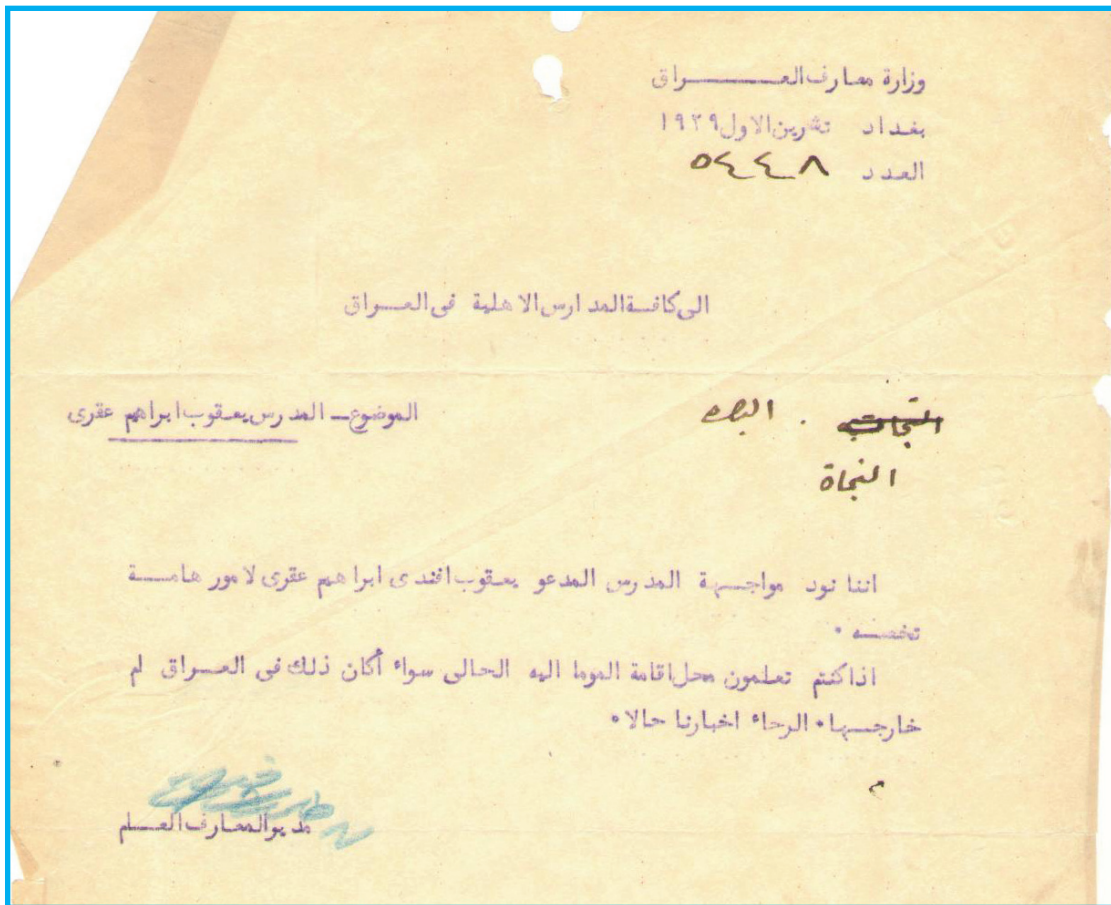 وزارة معارف العـــــــراق
بغداد تشرين الاول ١٩٢٩
العدد ٥٤٤٨
الى كافـة المدارس الاهلية فى العــراق
البصره
الموضوع ـ المدرس يعقوب ابراهيم عقرى
النجاة
اننا نود مواجـهة المدرس المدعو يعقوب افندى ابراهيم عقرى لامور هامــة
تخصــه ٠
اذا كنتم تعلمون محل اقامة الموما اليه الحالى سواء أكان ذلك فى العــراق لم
خارجــها ٠ الرجاء اخبارنا حالا ٠
مديوالمعارف العــام